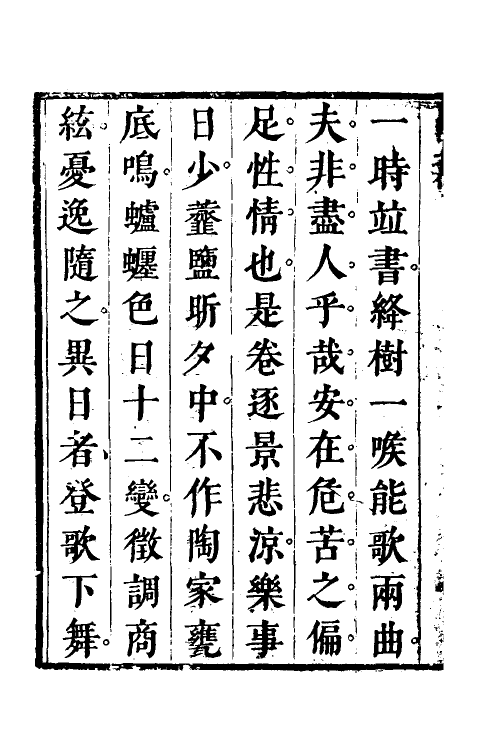 一時竝書。絳樹一喉能歌兩曲。
夫。非。盡。人。乎。哉。安。在。危。苦。之。偏。
足。性。情。也。是卷逐景悲涼。樂事
日少。虀鹽昕夕中。不作陶家甕
底鳴。蠦䗫色日十二變。徵調商
絃。憂逸隨之。異日者登歌下舞。